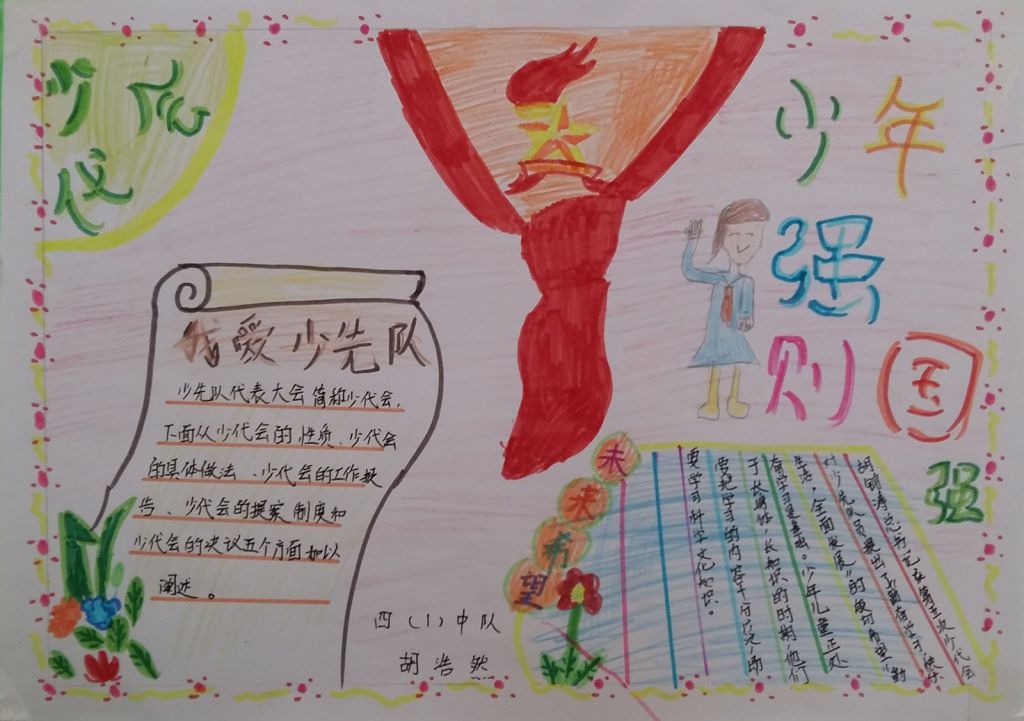 少先
代
少年
强
则国
强
我爱少先队
少先队代表大会简称少代会,
下面从少代会的性质、少代会
的具体做法、少代会的工作报
告、少代会的提案制度和
少代会的决议五个方面加以
阐述。
四(1)中队
胡浩然
未
来
希
望
胡锦涛总书记在第五次少代会
对少先队员提出了“勤奋学习、快乐
生活、全面发展”的殷切希望。“勤
奋学习是主要。少年儿童正处
于长身体,长知识的时期他们
要学习科学文化知识。